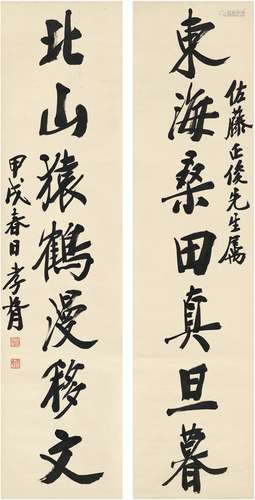 東海桑田真旦暮
佐藤正俊先生屬
北山猿鶴漫移文
甲戌春日孝胥